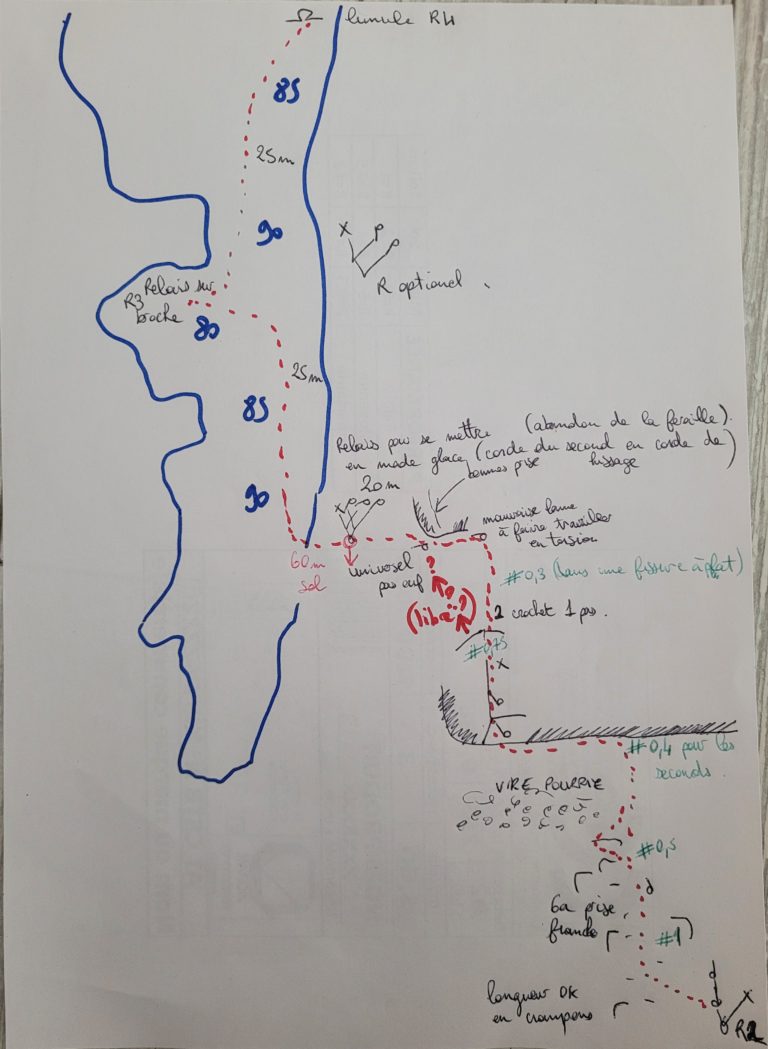 lunule R4
85
25m
90
R optionel
Relais sur
R3
broche
80
25m
85
90
Relais pour se mettre
en mode glace
20m
(abandon de la feraille).
(corde du second en corde de
hissage)
bonnes prise
mauvaise lame
à faire travailler
en torsion
60m
sol
univosel
pas ouf
?
?
(libre?)
#0,3 (dans une fissure à plat)
2 crochet 1 pas.
#0,75
#0,4 pour les
seconds.
VIRE POURRIE
#0,5
6a prise
franche
#1
longueur OK
en crampons
R2